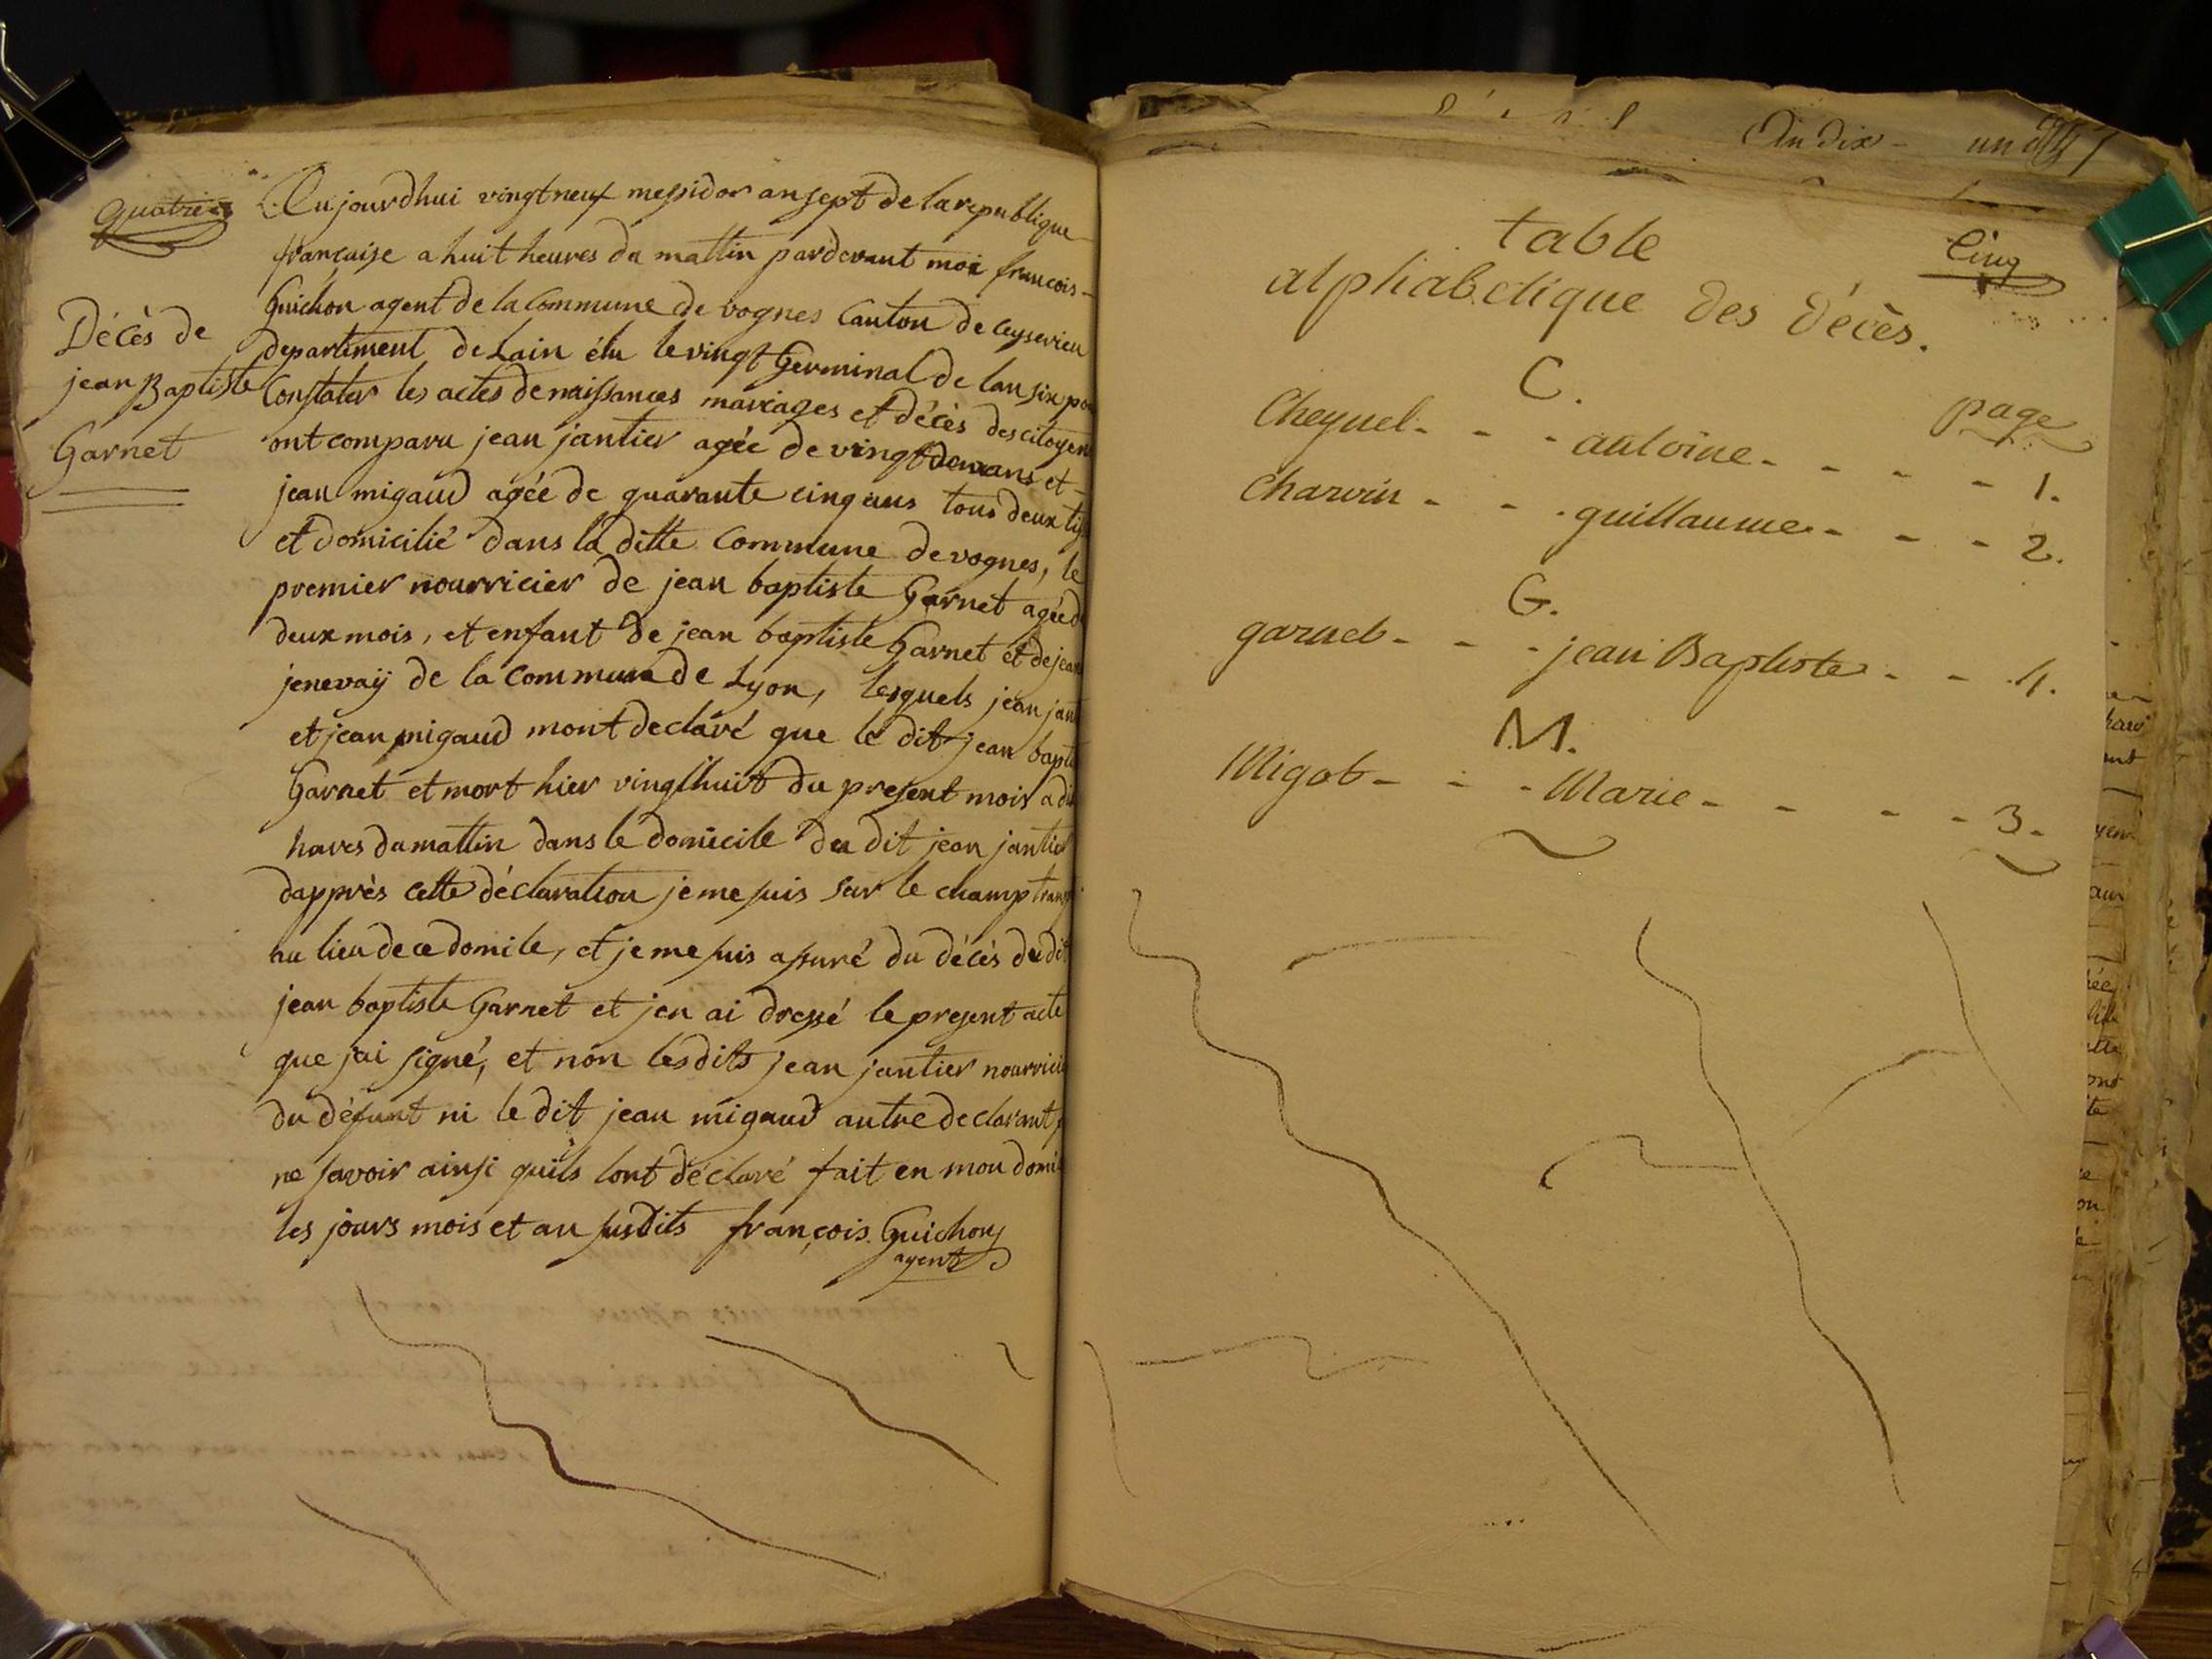 quatre
Décès de
jean Baptiste
Garnet
Aujourdhui vingt neuf messidor an sept de la republique
française a huit heures du mattin pardevant moi francois
Guichon agent de la Commune de vognes Canton de Ceyserieu
departiment de Lain élu le vingt Germinal de lan six pou
Constater les actes de naissances mariages et décès des citoyens
ont comparu jean jantier agée de vingt deux ans et
jean migaud agée de quarante cinq ans tous deux
et domicilié dans la ditte Commune de vognes, le
premier nourricier de jean baptiste Garnet agée d
deux mois, et enfant de jean baptiste Garnet et de jean
jenevaÿ de la Commune de Lyon, lesquels jean jant
et jean migaud mont declaré que le dit jean bapt
Garnet et mort hier vingthuit du present mois a di
heures du mattin dans le domicile du dit jean jantier
dapprès cette déclaration je me suis sur le champ transp
au lieu de ce domile, et je me suis assuré du décès du dit
jean baptiste Garnet et jen ai dressé le present acte
que jai signé, et non lesdits jean jantier nourricie
du défunt ni le dit jean migaud autre declarant p
ne savoir ainsi quils lont déclaré fait en mon domi
les jours mois et an susdits françois Guichon
agent
an dix - un
table
Cinq
alphabetique des décès.
C.
page
Cheynel - - - antoine - - - - 1.
Charvin - - - guillaume - - - 2.
G.
garnet - - - jean Baptiste - - 4.
M.
Migot - - - Marie - - - - 3.